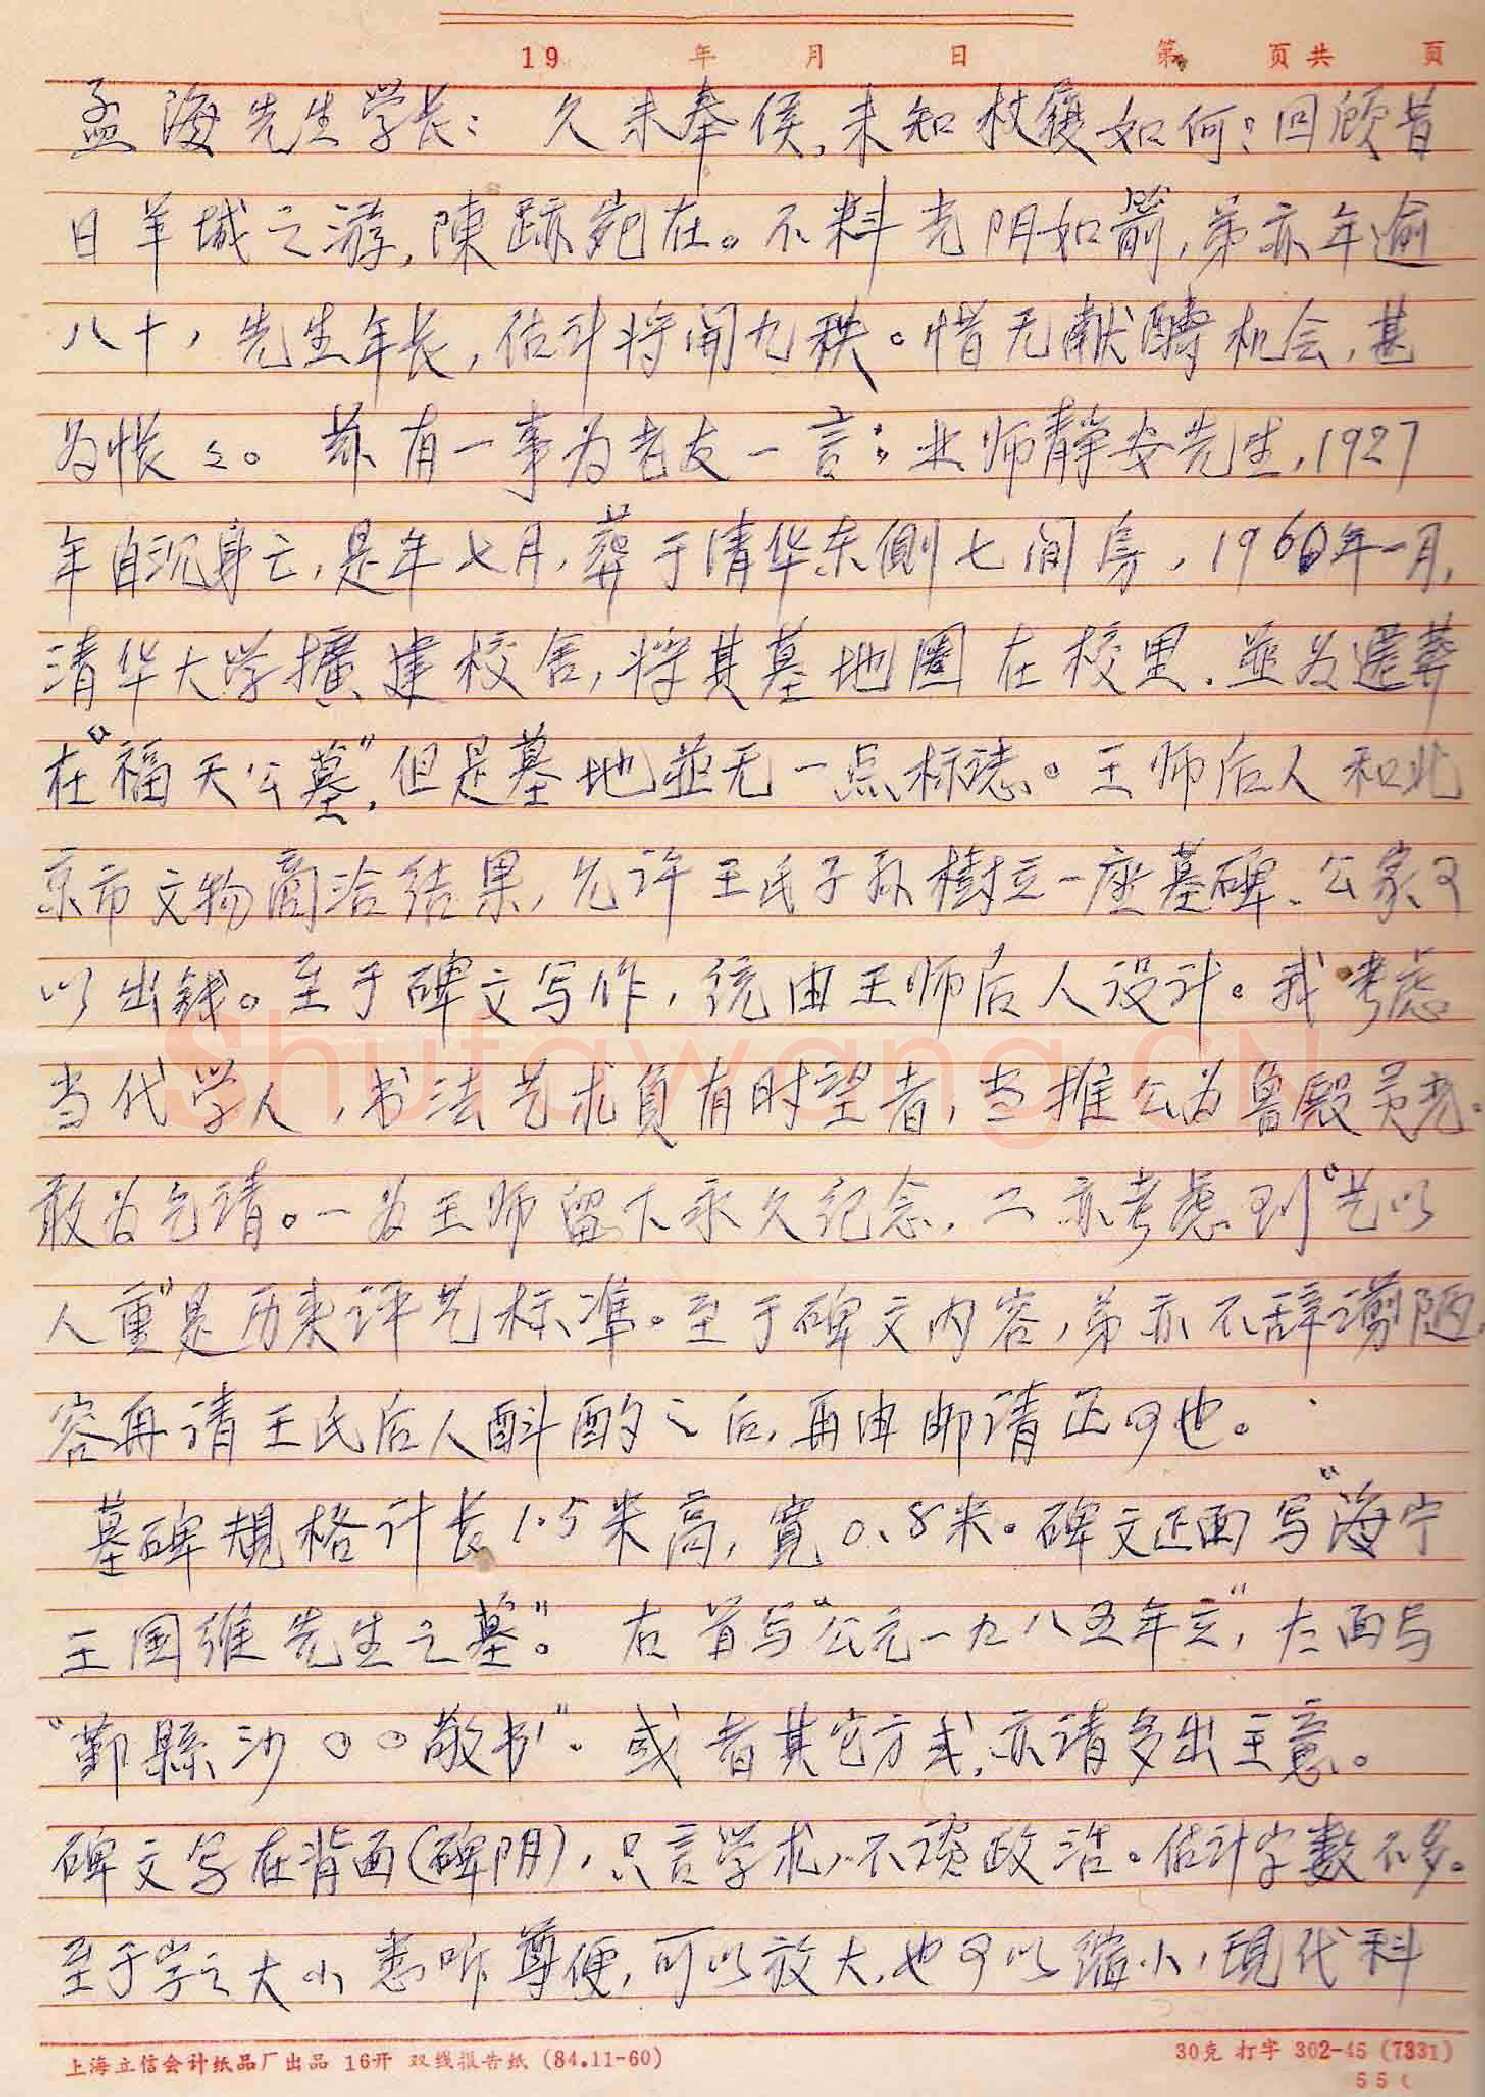 19 年 月 日 第 页共 页
孟海先生学长：久未奉侯,未知杖履如何？回顾昔
日羊城之游,陳跡宛在。不料光阴如箭,弟亦年逾
八十,先生年长,估计将開九秩。惜无献醻机会,甚
为怅々。兹有一事为老友一言：业师静安先生,1927
年自沉身亡,是年七月,葬于清华东側七间房,1960年一月,
清华大学擴建校舍,将其墓地圈在校里.並为遷葬
在“福天公墓”,但是墓地並无一点标誌。王师后人和北
京市文物商洽结果,允许王氏子孙樹立一座墓碑、公家可
以出錢。至于碑文写作,统由王师后人设计。我考虑
当代学人,书法艺术負有时望者,当推公为鲁殿灵光.
敢为乞请。一为王师留下永久纪念,二亦考慮到“艺以
人重”是历来评艺标准。至于碑文内容,弟亦不辞谫陋.
容再请王氏后人斟酌之后,再由邮请正可也。
墓碑規格计长1.5米高,寬0.8米.碑文正面写“海宁
王国维先生之墓”。右首写“公元一九八五年立”,左面写
“鄞縣沙○○敬书”.或者其它方式,亦请多出主意。
碑文写在背面(碑阴),只言学术,不谈政治。估计字数不多。
至于字之大小悉听尊便,可以放大,也可以缩小,現代科
上海立信会计纸品厂出品 16开 双线报告纸 (84.11-60)
30克 打字 302-45 (7331)
55
Shufawang.CN